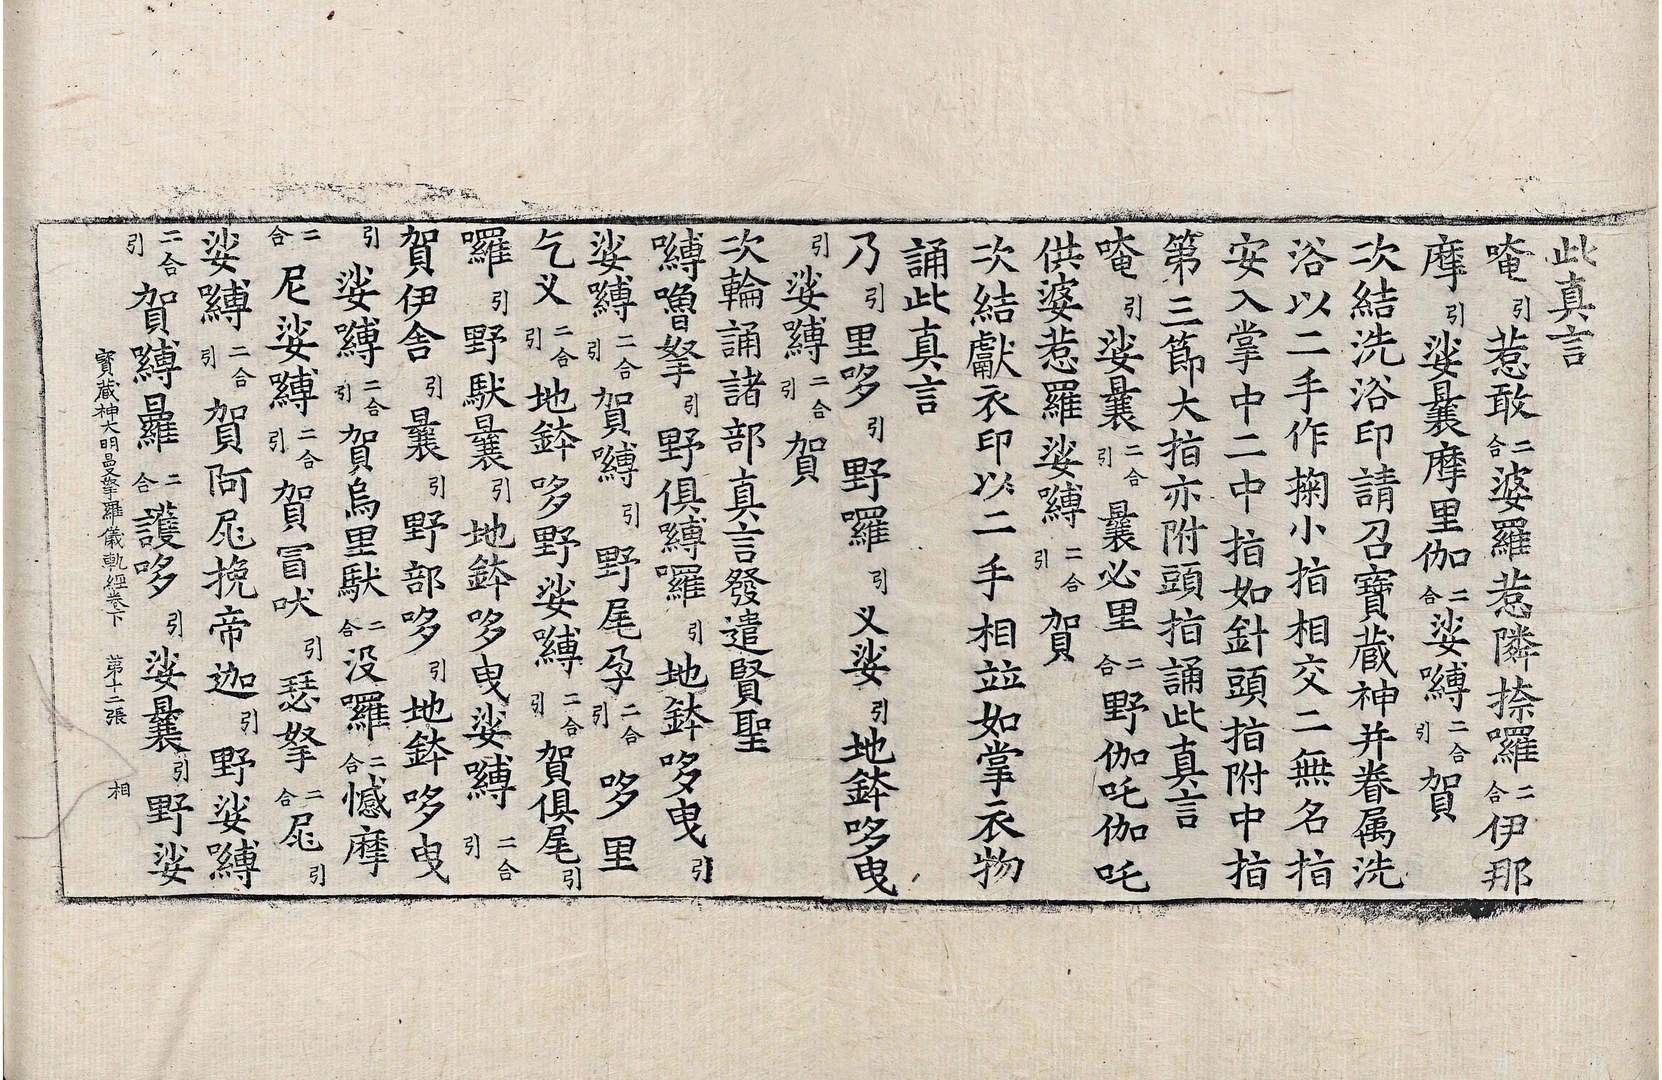 此真言
唵引惹敢二合婆羅惹隣捺囉二合伊那
摩引娑曩摩里伽二合娑嚩二合引賀
次結洗浴印請召寶藏神并眷属洗
浴以二手作掬小指相交二無名指
安入掌中二中指如針頭指附中指
第三節大指亦附頭指誦此真言
唵引娑曩二合引曩必里二合野伽吒伽吒
供婆惹羅娑嚩二合引賀
次結獻衣印以二手相並如掌衣物
誦此真言
乃引里哆引野囉引义娑引地鉢哆曳
引娑嚩二合引賀
次輪誦諸部真言發遣賢聖
嚩嚕拏引野俱嚩囉引地鉢哆曳引
娑嚩二合引賀嚩引野尾孕二合引哆里
乞义二合引地鉢哆野娑嚩二合引賀俱尾引
囉引野馱曩引地鉢哆曳娑嚩二合引
賀伊舍引曩引野部哆引地鉢哆曳
引娑嚩二合引賀烏里馱二合没囉二合憾摩
二合尼娑嚩二合引賀冒吠引瑟拏二合尾引
娑嚩二合引賀阿尾挽帝迦引野娑嚩
二合引賀嚩曩二合護哆引娑曩引野娑
寶藏神大明曼拏羅儀軌經卷下 第十二張 相